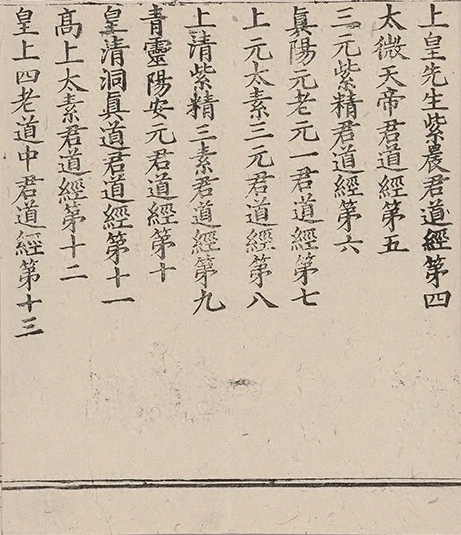 上皇先生紫晨君道經第四
太微天帝君道經第五
三元紫精君道經第六
眞陽元老元一君道經第七
上元太素三元君道經第八
上清紫精三素君道經第九
青靈陽安元君道經第十
皇清洞眞道君道經第十一
高上太素君道經第十二
皇上四老道中君道經第十三